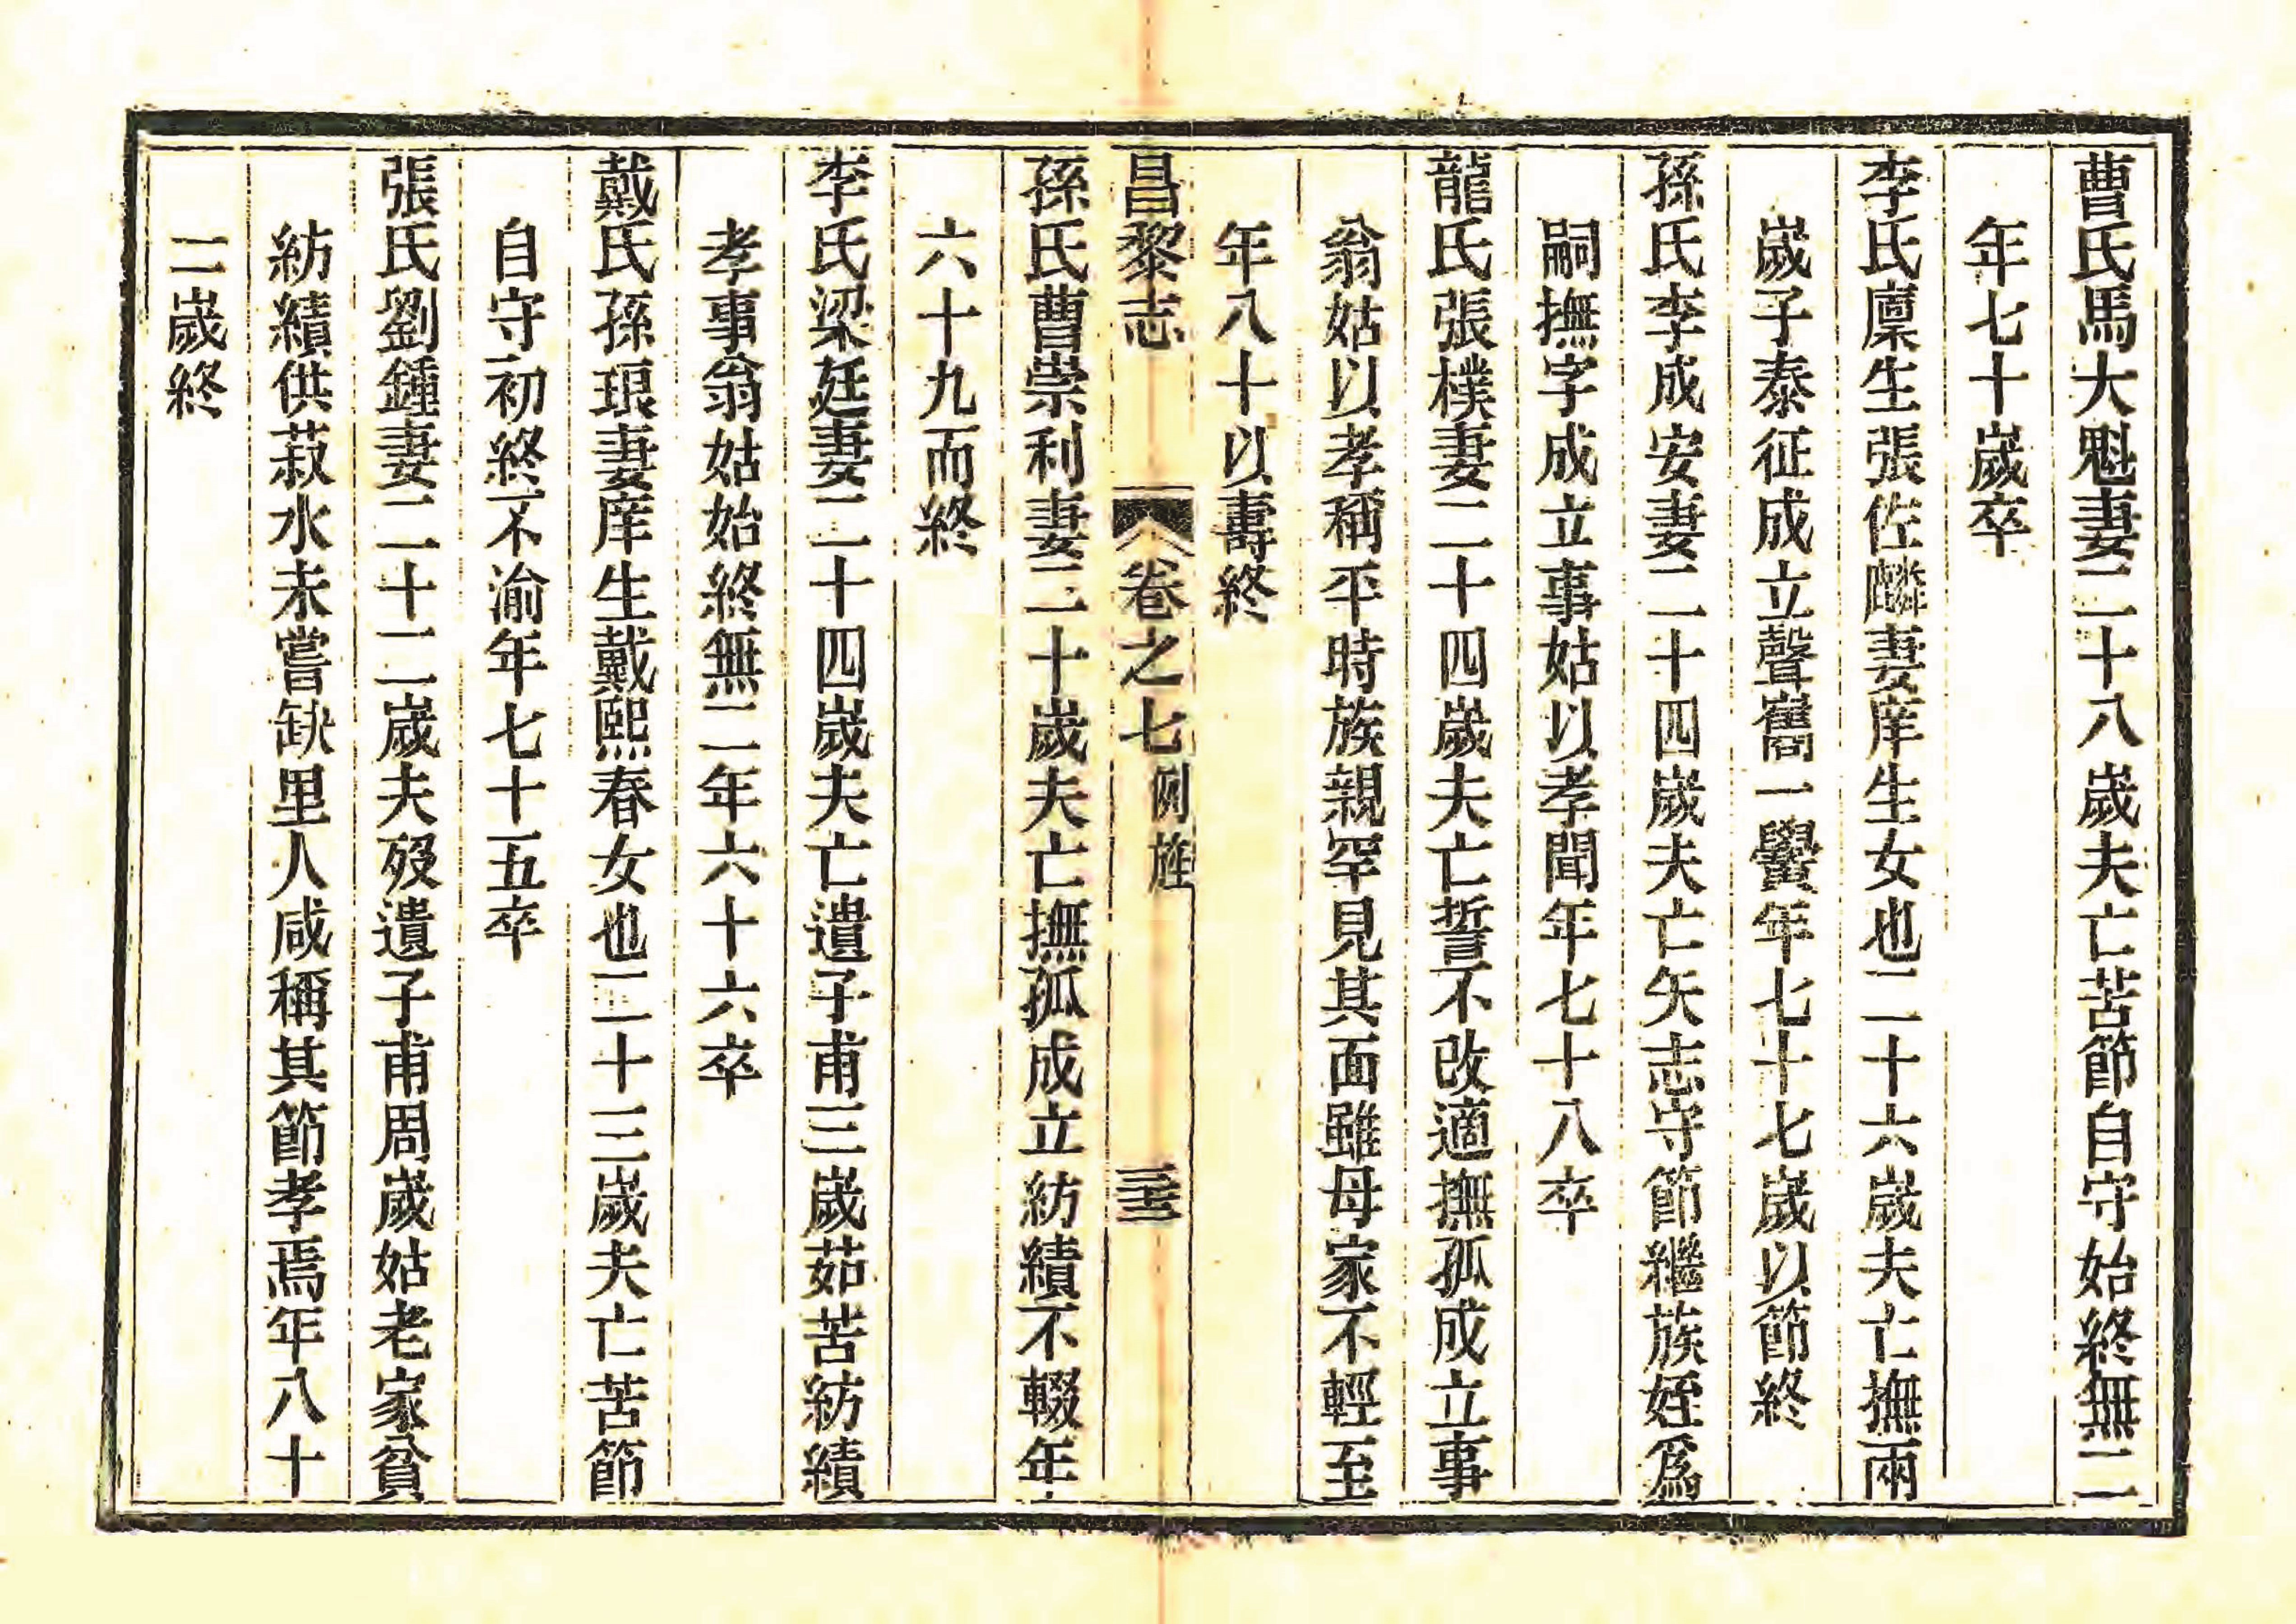 曹氏馬大魁妻二十八歲夫亡苦節自守始終無二
年七十歲卒
李氏廩生張佐麟妻庠生女也二十六歲夫亡撫兩
歲子泰征成立聲嶲一黌年七十七歲以節終
孫氏李成安妻二十四歲夫亡矢志守節繼族姪爲
嗣撫字成立事姑以孝聞年七十八卒
龍氏張樸妻二十四歲夫亡誓不改適撫孤成立事
翁姑以孝稱平時族親罕見其面雖母家不輕至
年八十以壽終
昌黎志 卷之七 例旌 三十三
孫氏曹崇利妻二十歲夫亡撫孤成立紡績不輟年
六十九而終
李氏梁廷妻二十四歲夫亡遺子甫三歲茹苦紡績
孝事翁姑始終無二年六十六卒
戴氏孫琅妻庠生戴熙春女也二十三歲夫亡苦節
自守初終不渝年七十五卒
張氏劉鍾妻二十二歲夫歿遺子甫周歲姑老家貧
紡績供菽水未嘗缺里人咸稱其節孝焉年八十
二歲終